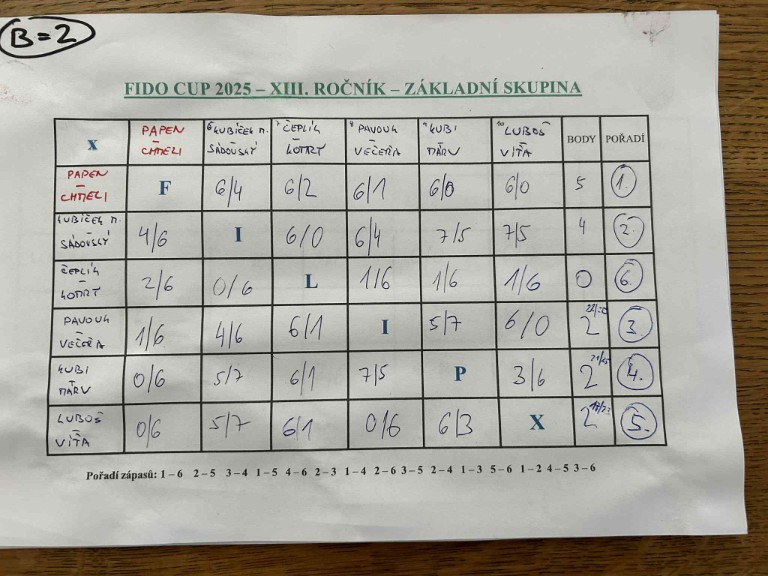 B=2
FIDO CUP 2025 – XIII. ROČNÍK – ZÁKLADNÍ SKUPINA
x PAPEN – CHMELI KUBÍČEK M. SÁDOVSKÝ ČEPLÍK – KOTRT PAVOUK – VEČEŘA KUBI MÁRV LUBOŠ VÍŤA BODY POŘADÍ
PAPEN – CHMELI F 6/4 6/2 6/1 6/0 6/0 5 1.
KUBÍČEK M. SÁDOVSKÝ 4/6 I 6/0 6/4 7/5 7/5 4 2.
ČEPLÍK – KOTRT 2/6 0/6 L 1/6 1/6 1/6 0 6.
PAVOUK – VEČEŘA 1/6 4/6 6/1 I 5/7 6/0 2 3.
KUBI MÁRV 0/6 5/7 6/1 7/5 P 3/6 2 4.
LUBOŠ VÍŤA 0/6 5/7 6/1 0/6 6/3 X 2 5.
Pořadí zápasů: 1 – 6 2 – 5 3 – 4 1 – 5 4 – 6 2 – 3 1 – 4 2 – 6 3 – 5 2 – 4 1 – 3 5 – 6 1 – 2 4 – 5 3 – 6